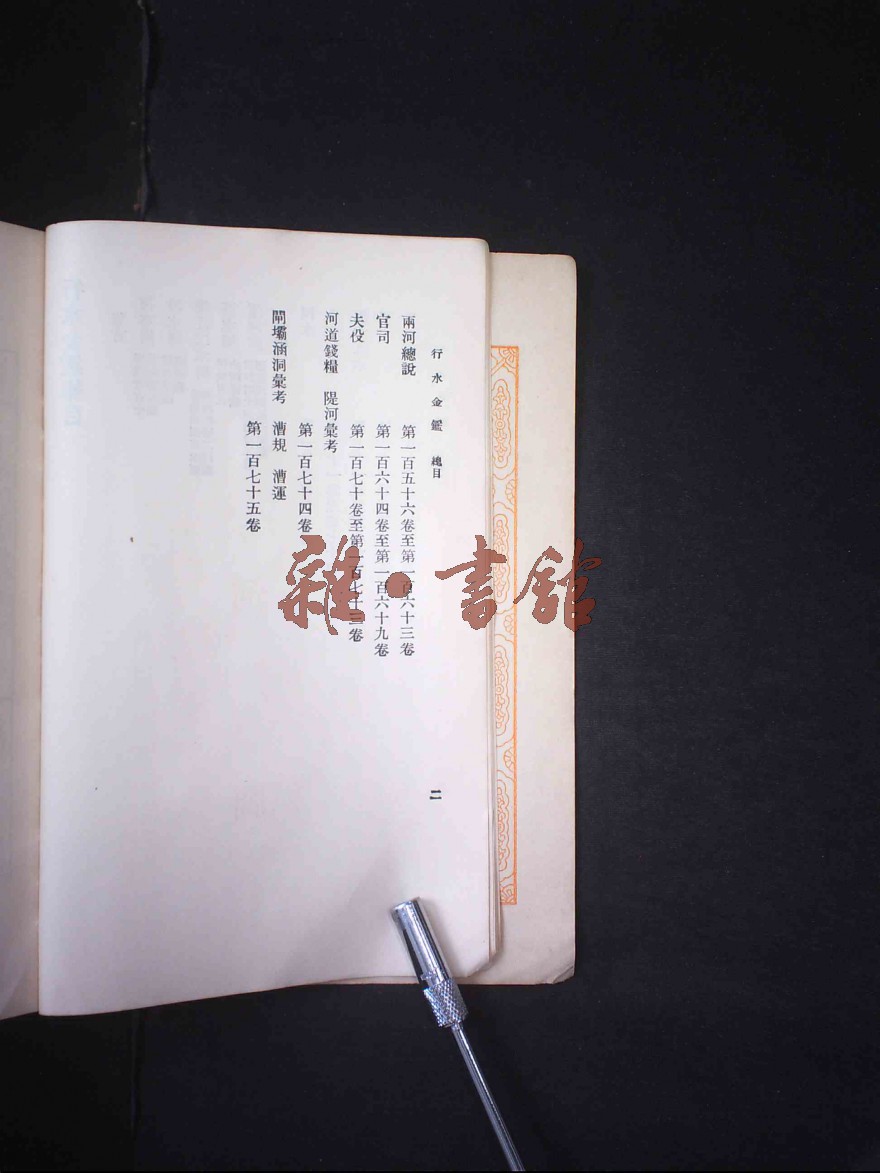 行水金鑑 總目
兩河總說 第一百五十六卷至第一百六十三卷
官司 第一百六十四卷至第一百六十九卷
夫役 第一百七十卷至第一百七十三卷
河道錢糧 隄河彙考
第一百七十四卷
閘壩涵洞彙考 漕規 漕運
第一百七十五卷
二
雜·書館